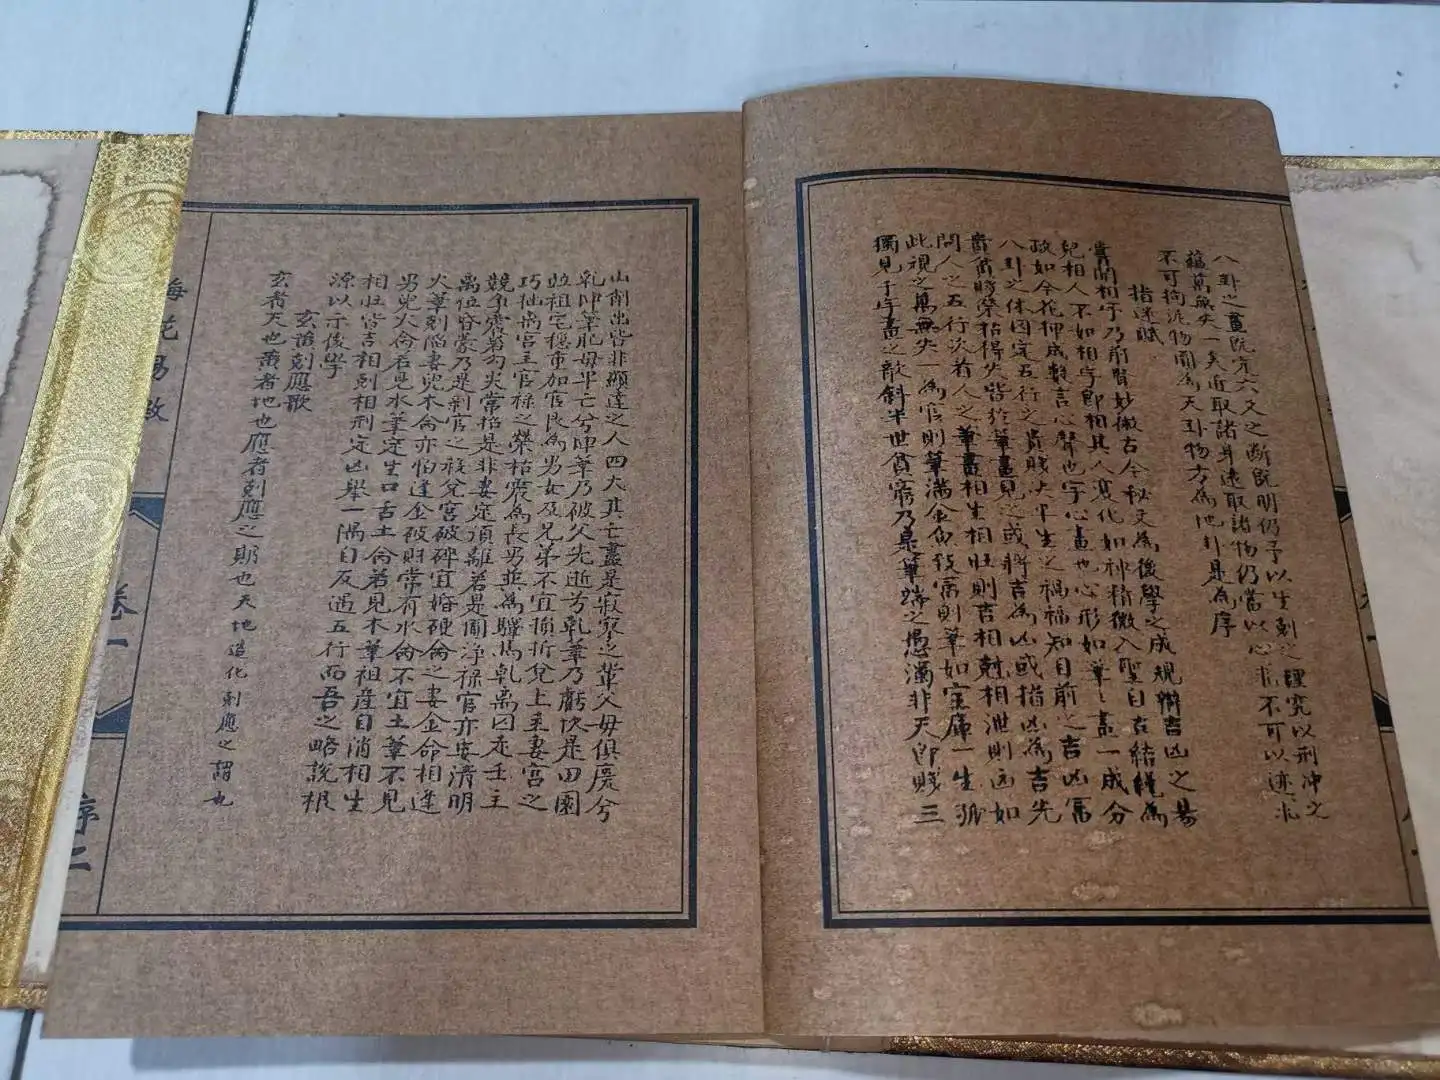 八卦之畫既定六爻之斷既明仍予以生剋之理究以刑沖之
蘊萬無失一矣近取諸身遠取諸物仍當以心求不可以迹求
不可拘泥物圖為天卦物方為地卦是為序
指迷賦
嘗聞相字乃前賢妙術古今秘文為後學之成規辨吉凶之易
見相人不如相字即相其人變化如神精微入聖自在結繩為
政如今花押成數言心聲也字心畫也心形如筆之畫一成分
八卦之休囚定五行之貴賤決平生之禍福知目前之吉凶富
貴貧賤榮枯得失皆於筆畫見之或將吉為凶或指凶為吉先
問人之五行次看人之筆畫相生相旺則吉相尅相泄則凶如
此視之萬無失一為官則筆滿金魚致富則筆如寶庫一生孤
獨見于字畫之欹斜半世貧窮乃是筆端之愚濁非天即賤三
山削出皆非顯達之人四大其亡盡是寂寥之輩父母俱慶兮
乾坤筆肥母早亡兮坤筆乃破父先逝兮乾筆乃虧坎是田園
並祖宅穩重加官艮為男女及兄弟不宜損折兌上乘妻宮之
巧仙尚宮主官祿之榮枯震為長男巽為驛馬乾离囚走壬主
競爭震若勾尖常招是非妻定須離若是圓淨祿官亦安清明
离位昏蒙乃是剝官之殺兌宮破碎宜婚硬命之妻金命相逢
火筆剋陷妻兒木命亦怕逢金破財常有水命不宜土筆不見
男兒火命若見水筆定生口舌土命若見木筆祖產自消相生
相旺皆吉相剋相刑定凶舉一隅自反遇五行而吾之略說根
源以示後學
玄黃剋應歌
玄者天也黃者地也應者剋應之期也天地造化剋應之謂也
梅花易數
卷一
序二